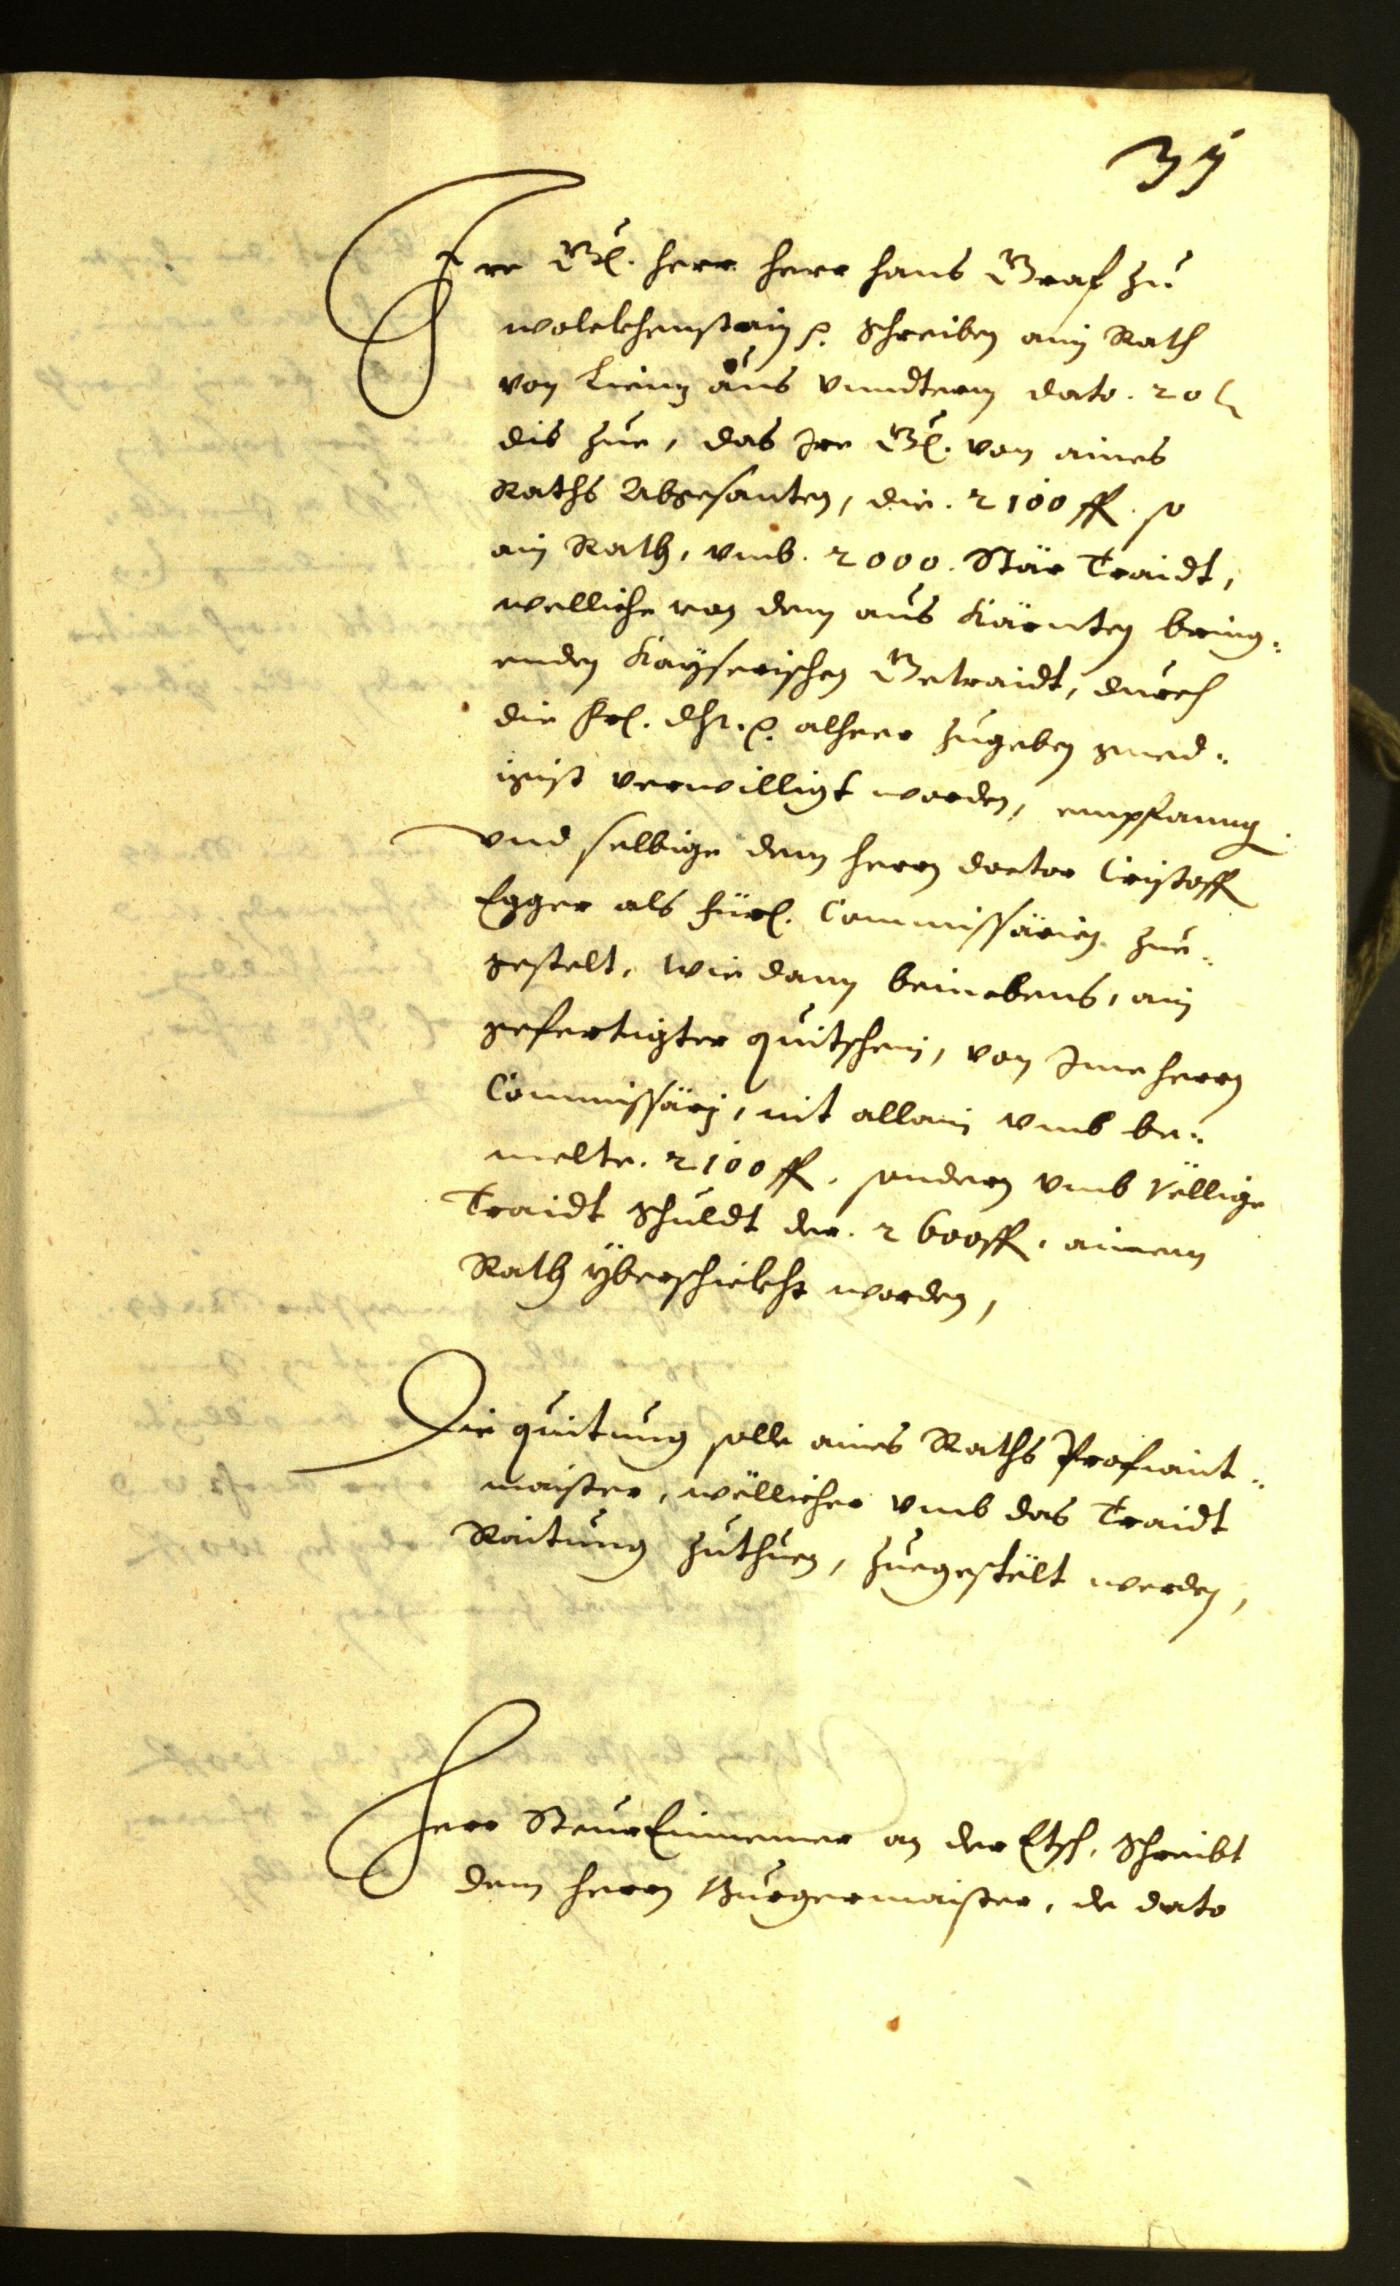 35
Ire Gl. herr herr hans Graf zu
wolckhenstain p. schreiben ain Rath
von Lienz aus vnndterm dato . 20
dis zue, das Ire Gl. von aines
Raths Abgesanten, die . 2100 fl. so
ain Rath, vmb . 2000 . Stär Traidt,
welliche von dem aus Kärnten bring¬
enden Kayserischen Getraidt, durch
die frl. dht. p. alheer zugeben gned¬
igist verwilligt worden, empfanng
vnd selbige dem herrn doctor Cristoff
Egger als fürl. Commissärien zue¬
gestelt, wie dann beinebens, ain
gefertigter quitschein, von Ime herrn
Commissärj, nit allain vmb be¬
melte . 2100 fl. sondern vmb völlige
Traidt schuldt der . 2600 fl. ainem
Rath yberschickht worden,
Die quitung solle aines Raths Profiant¬
maister, wellicher vmb das Traidt
Raitung zuthuen, zuegestelt werden,
Herr Steur Einnemer an der Etsch, schreibt
dem herrn Burgermaister, de dato